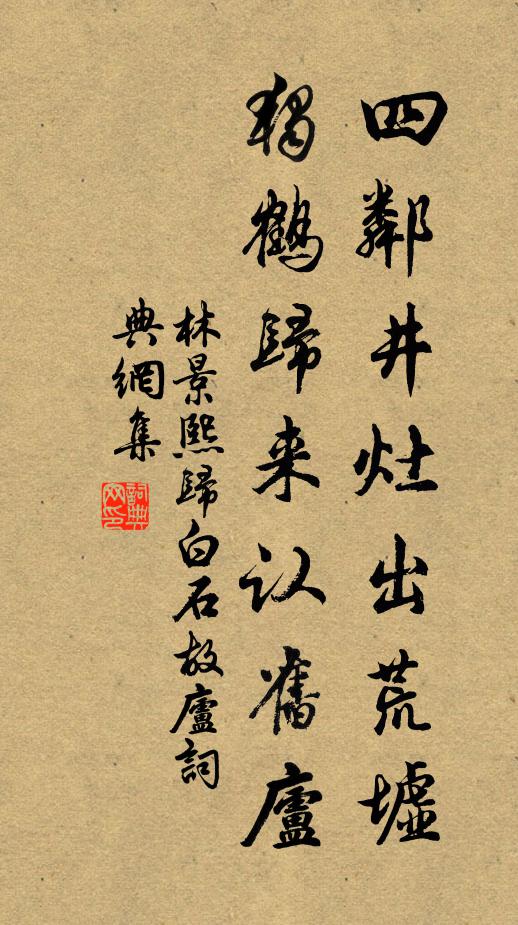 四鄰井灶出荒墟
獨鶴歸来认舊廬
林景熙歸白石故廬詞
典網集
詞典
网印